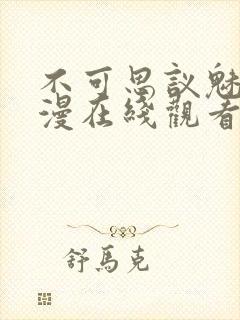 不可思议魅
漫在线观看
舒马克